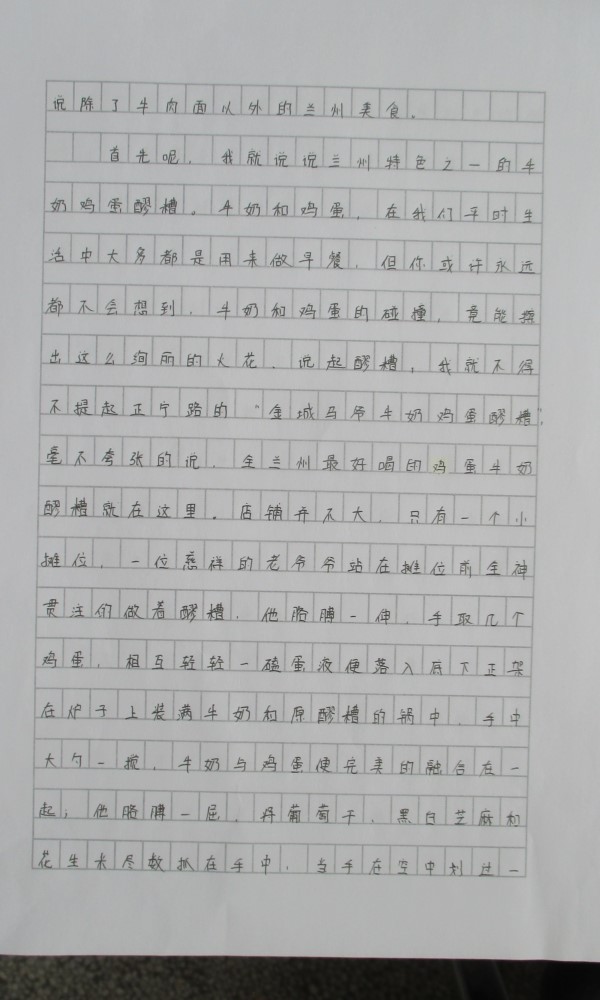 说除了牛肉面以外的兰州美食。
首先呢，我就说说兰州特色之一的牛
奶鸡蛋醪糟。牛奶和鸡蛋，在我们平时生
活中大多都是用来做早餐，但你或许永远
都不会想到，牛奶和鸡蛋的碰撞，竟能擦
出这么绚丽的火花。说起醪糟，我就不得
不提起正宁路的“金城马爷牛奶鸡蛋醪糟”，
毫不夸张的说，全兰州最好喝的鸡蛋牛奶
醪糟就在这里。店铺并不大，只有一个小
摊位，一位慈祥的老爷爷站在摊位前全神
贯注的做着醪糟，他胳膊一伸，手取几个
鸡蛋，相互轻轻一磕蛋液便落入底下正架
在炉子上装满牛奶和原醪糟的锅中，手中
大勺一搅，牛奶与鸡蛋便完美的融合在一
起；他胳膊一屈，将葡萄干，黑白芝麻和
花生米尽数抓在手中，当手在空中划过一